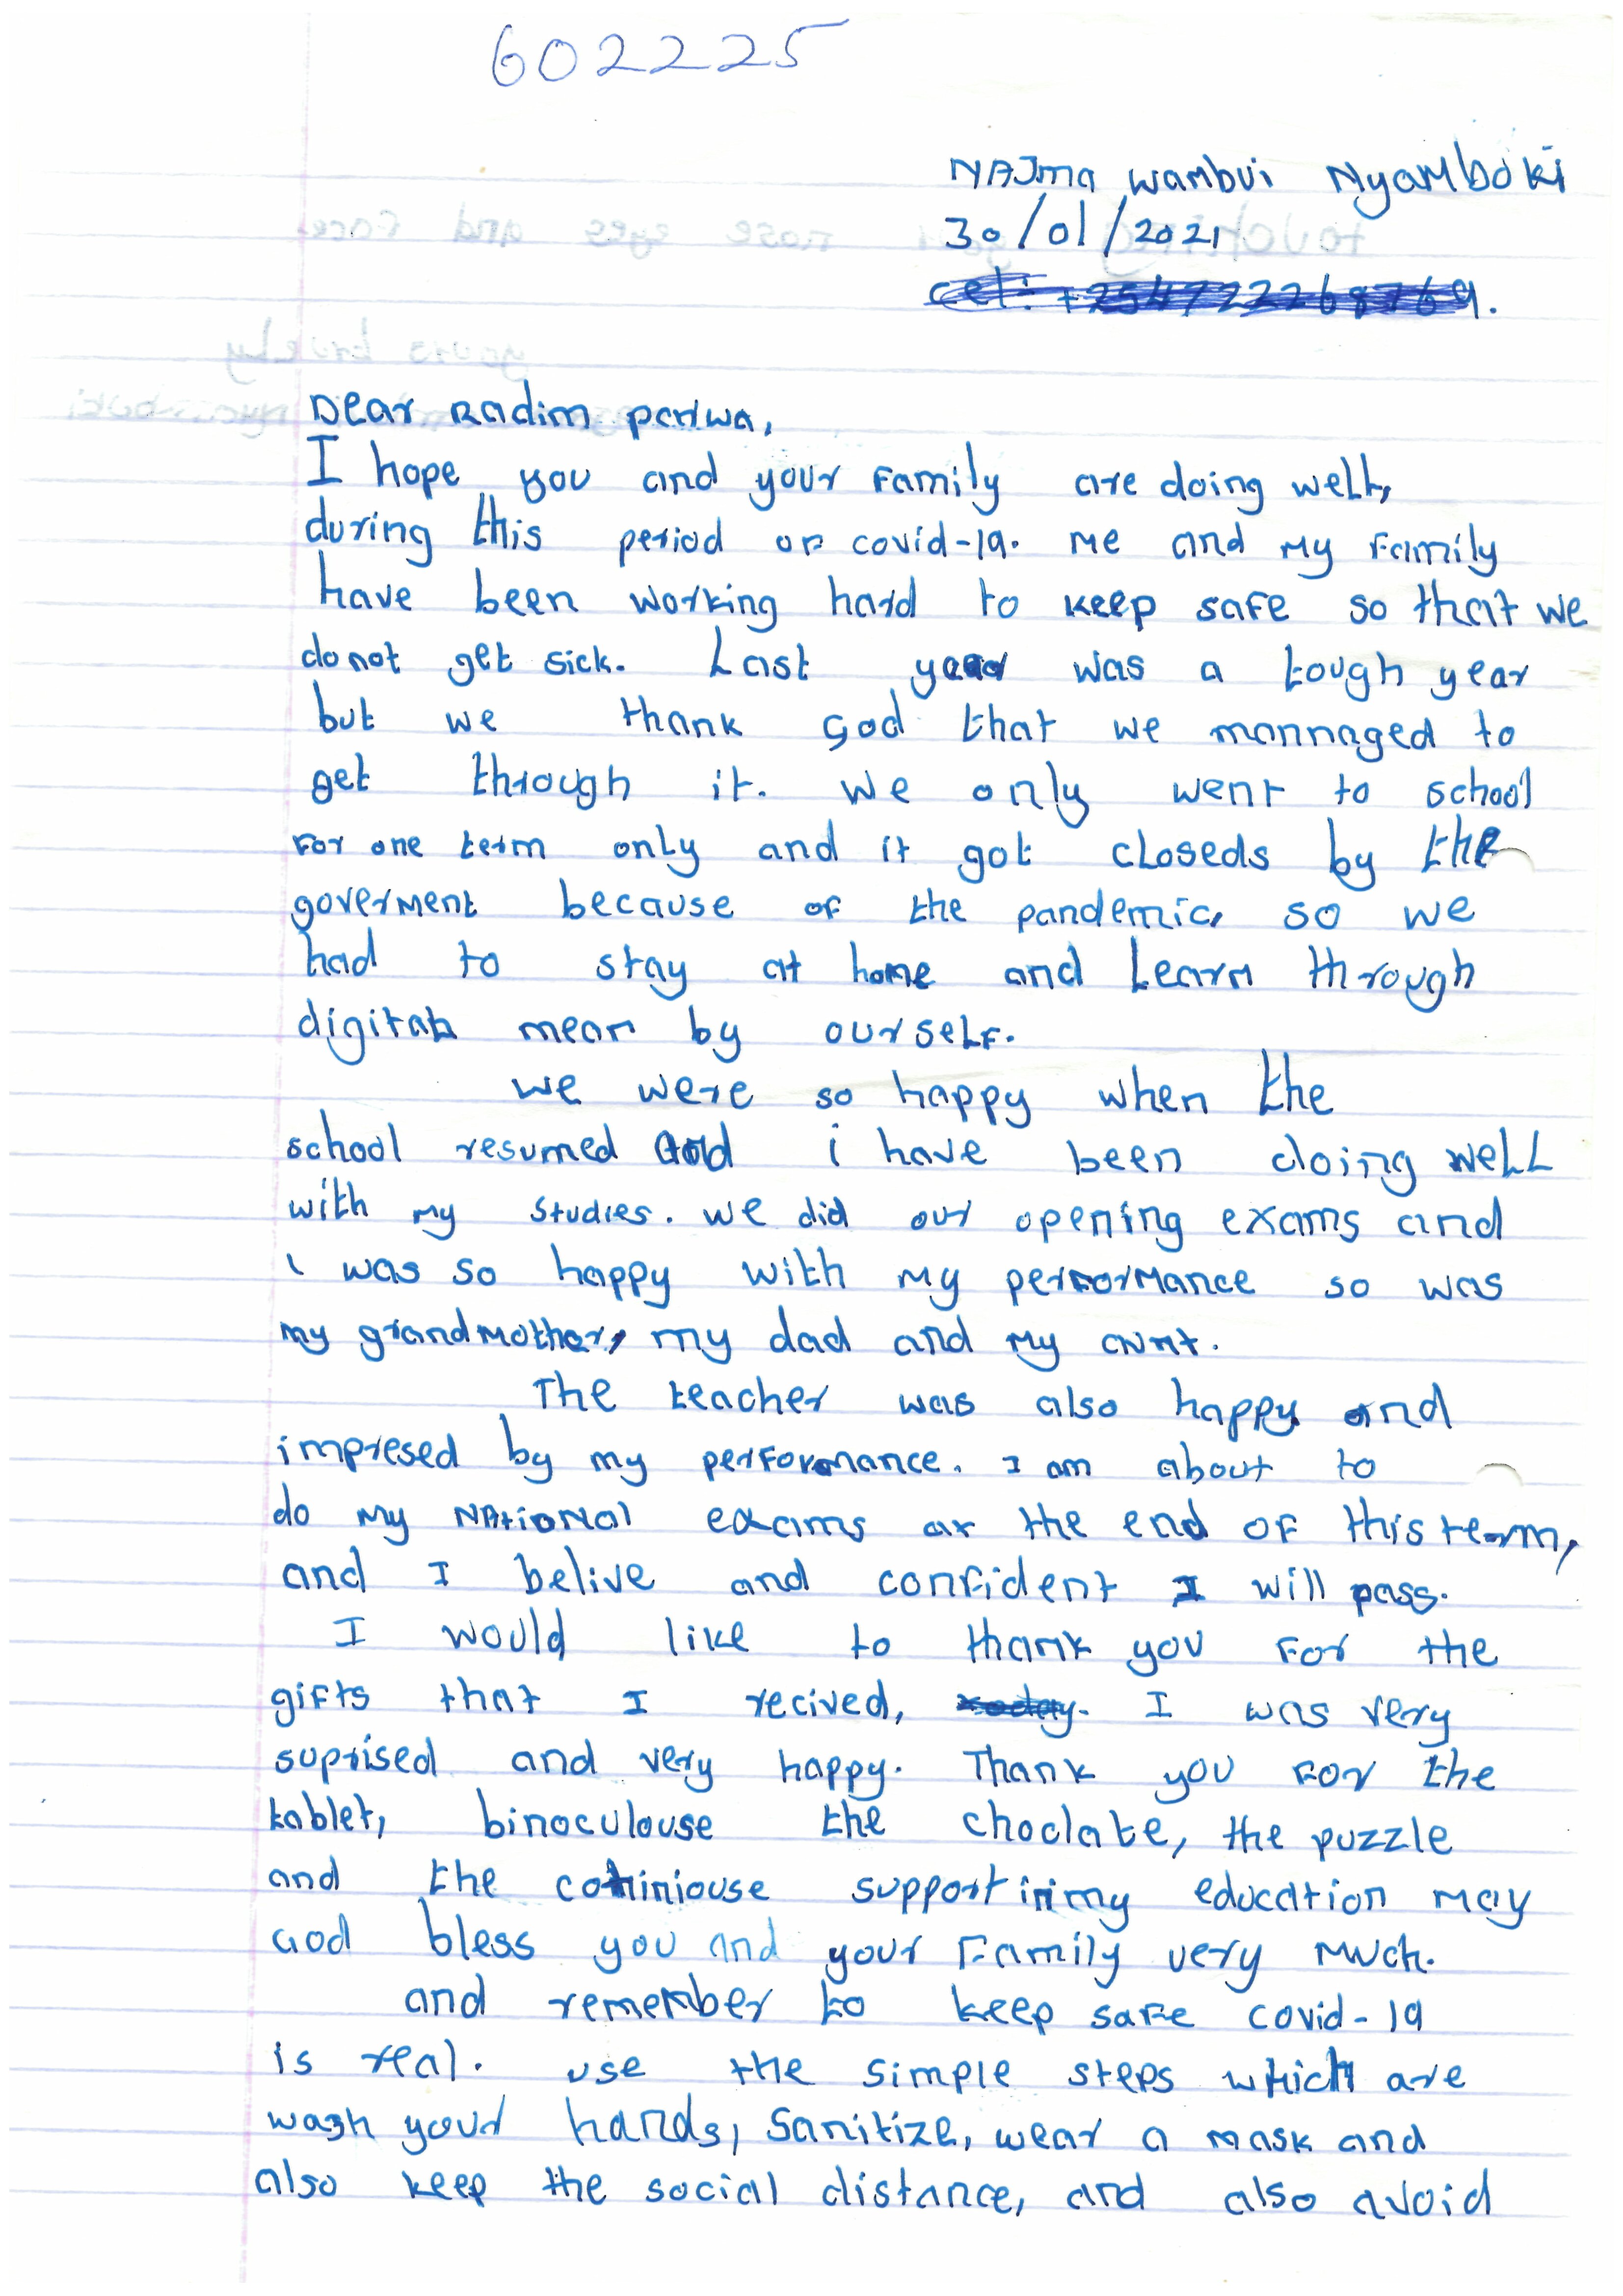 602225
NAJma wambui Nyamboki
30/01/2021
Dear Radim
I hope you and your Family are doing well,
during this period of covid-19. Me and my Family
have been working hard to keep safe so that we
do not get sick. Last year was a tough year
but we thank God that we mannaged to
get through it. We only went to school
For one term only and it got closeds by the
goverment because of the pandemic, so we
had to stay at home and Learn through
digital mean by ourself.
we were so happy when the
school resumed and i have been doing well
with my studies. we did our opening exams and
i was so happy with my performance so was
my grandmother, my dad and my aunt.
The teacher was also happy and
impresed by my performance. I am about to
do my NAtional exams at the end of this term,
and I belive and confident I will pass.
I would like to thank you For the
gifts that I recived, I was very
suprised and very happy. Thank you For the
tablet, binoculouse the choclate, the puzzle
and the continiouse support in my education may
God bless you and your Family very much.
and remember to keep safe covid-19
is real. use the simple steps which are
wash your hands, sanitize, wear a mask and
also keep the social distance, and also avoid